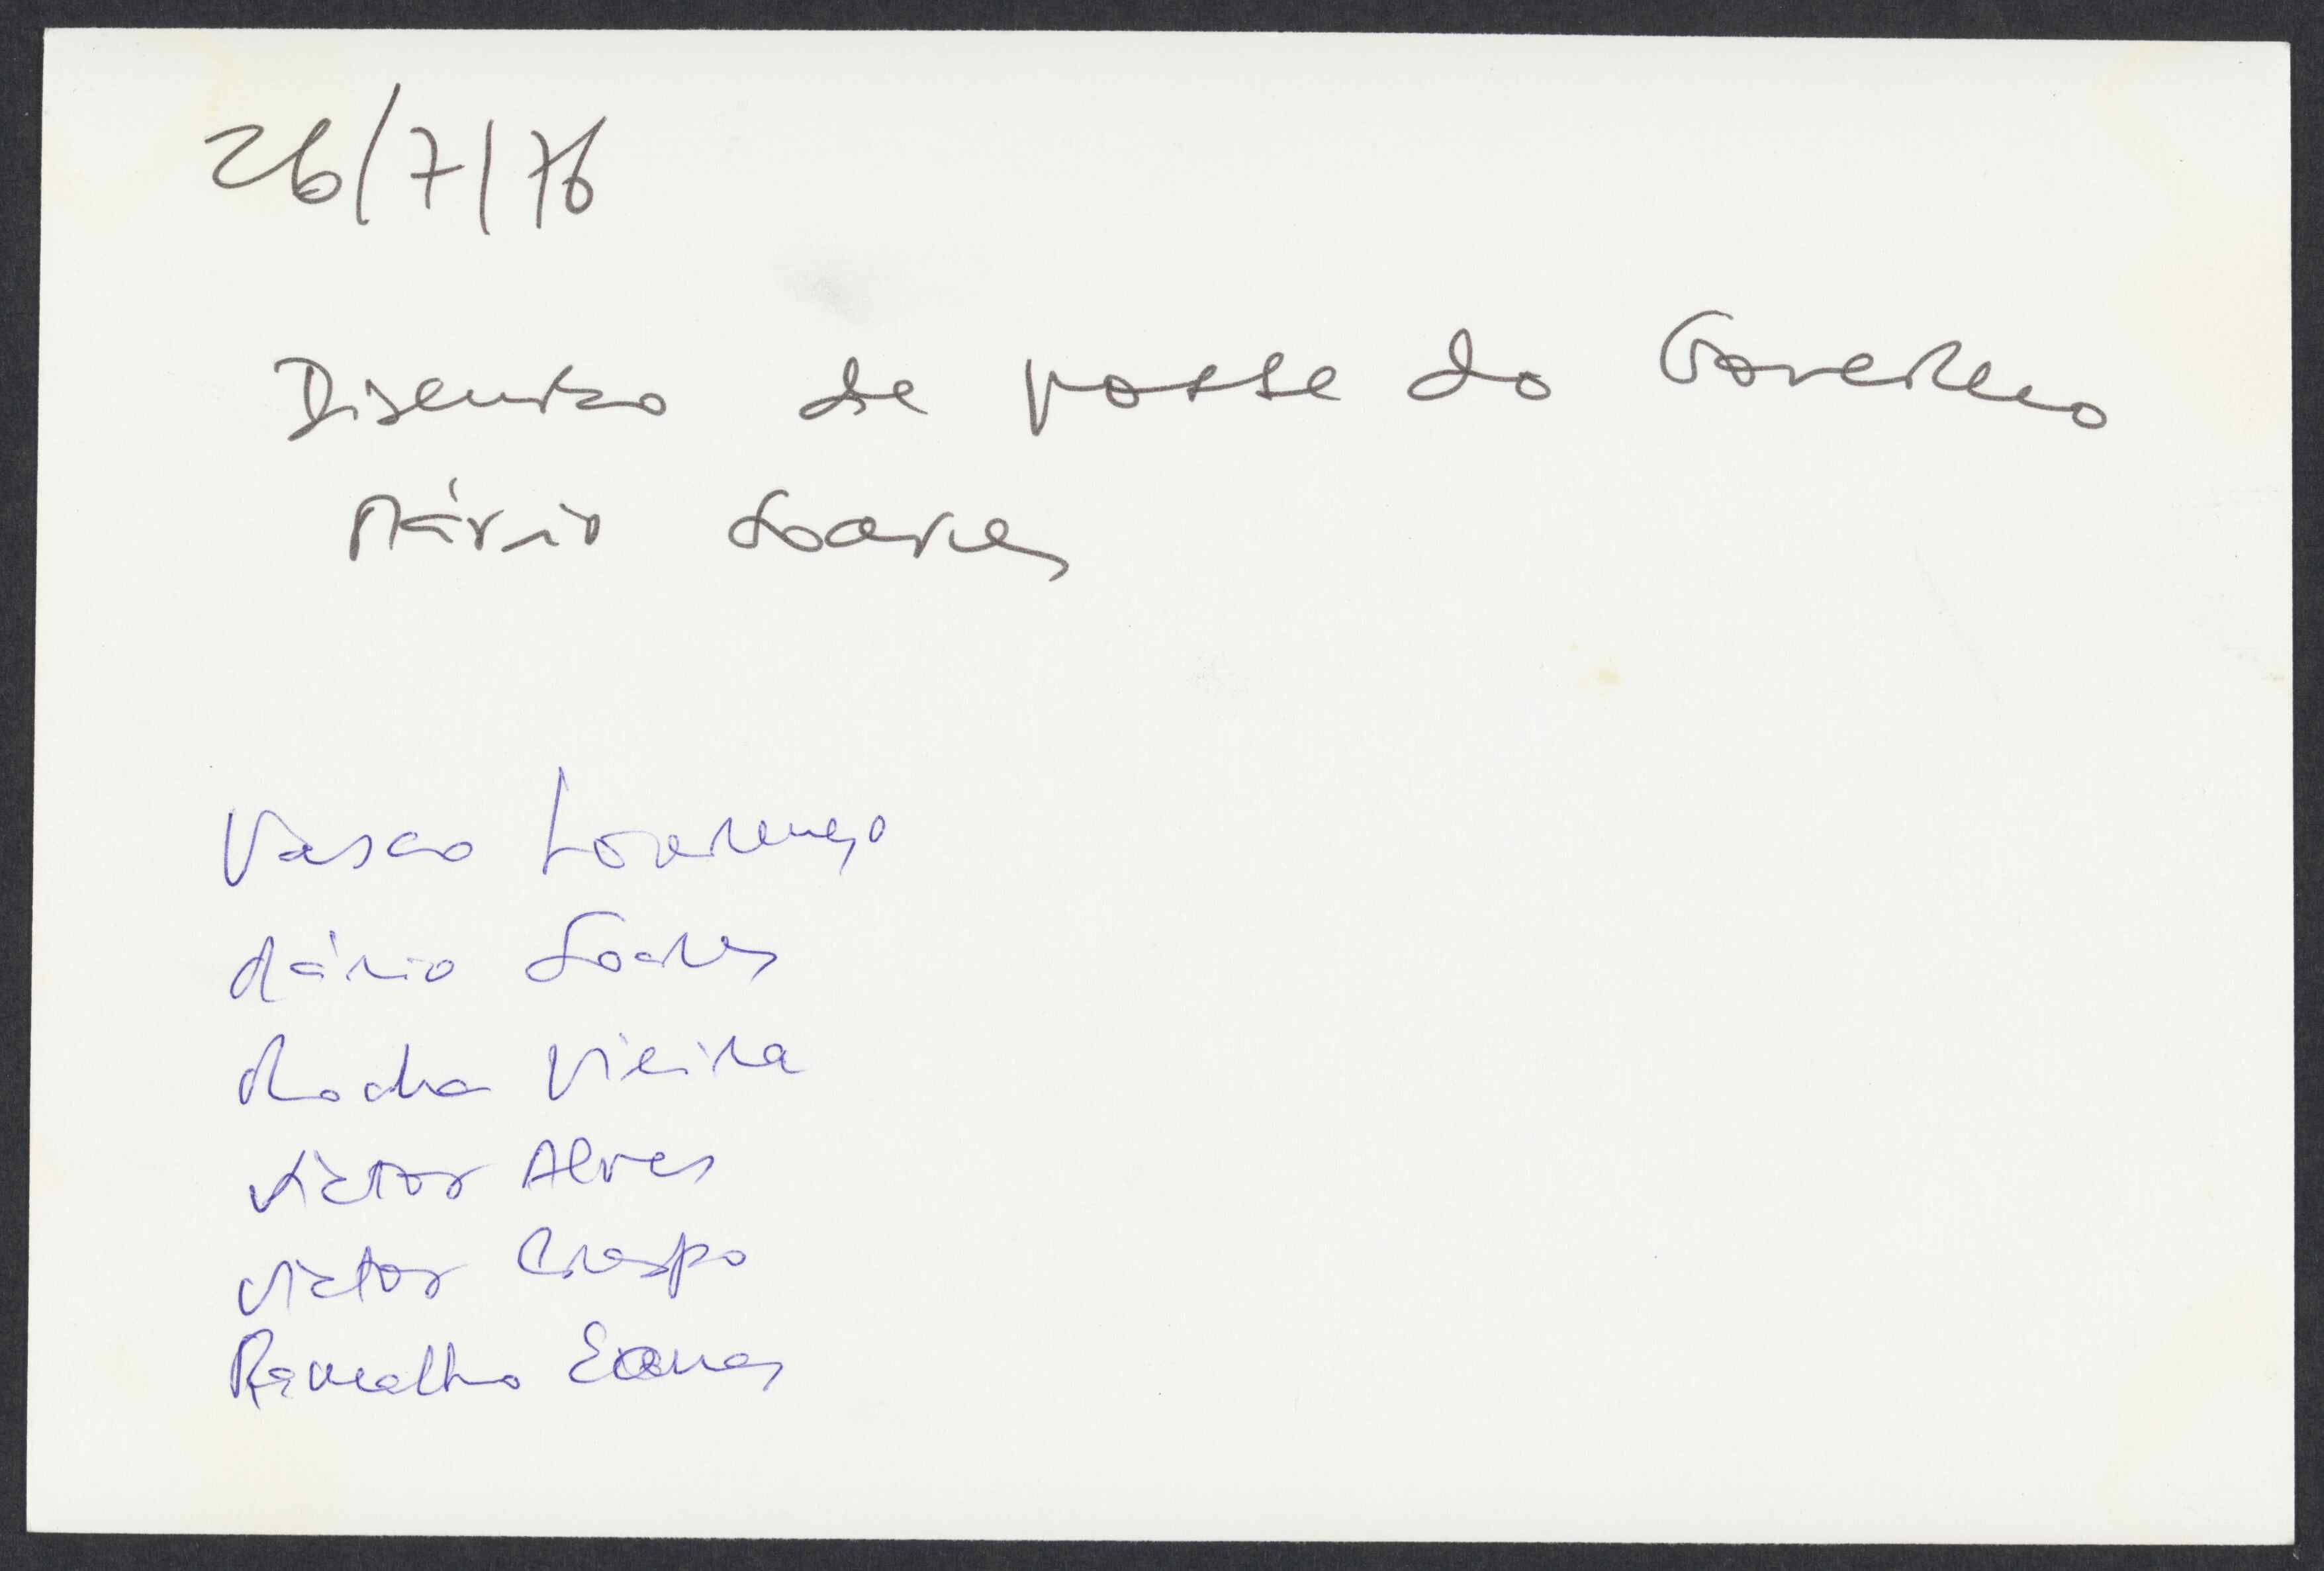 26/7/76
Discurso de posse do Governo
Mário Soares
Vasco Lourenço
Mário Soares
Rocha Vieira
Victor Alves
Victor Crespo
Ramalho Eanes